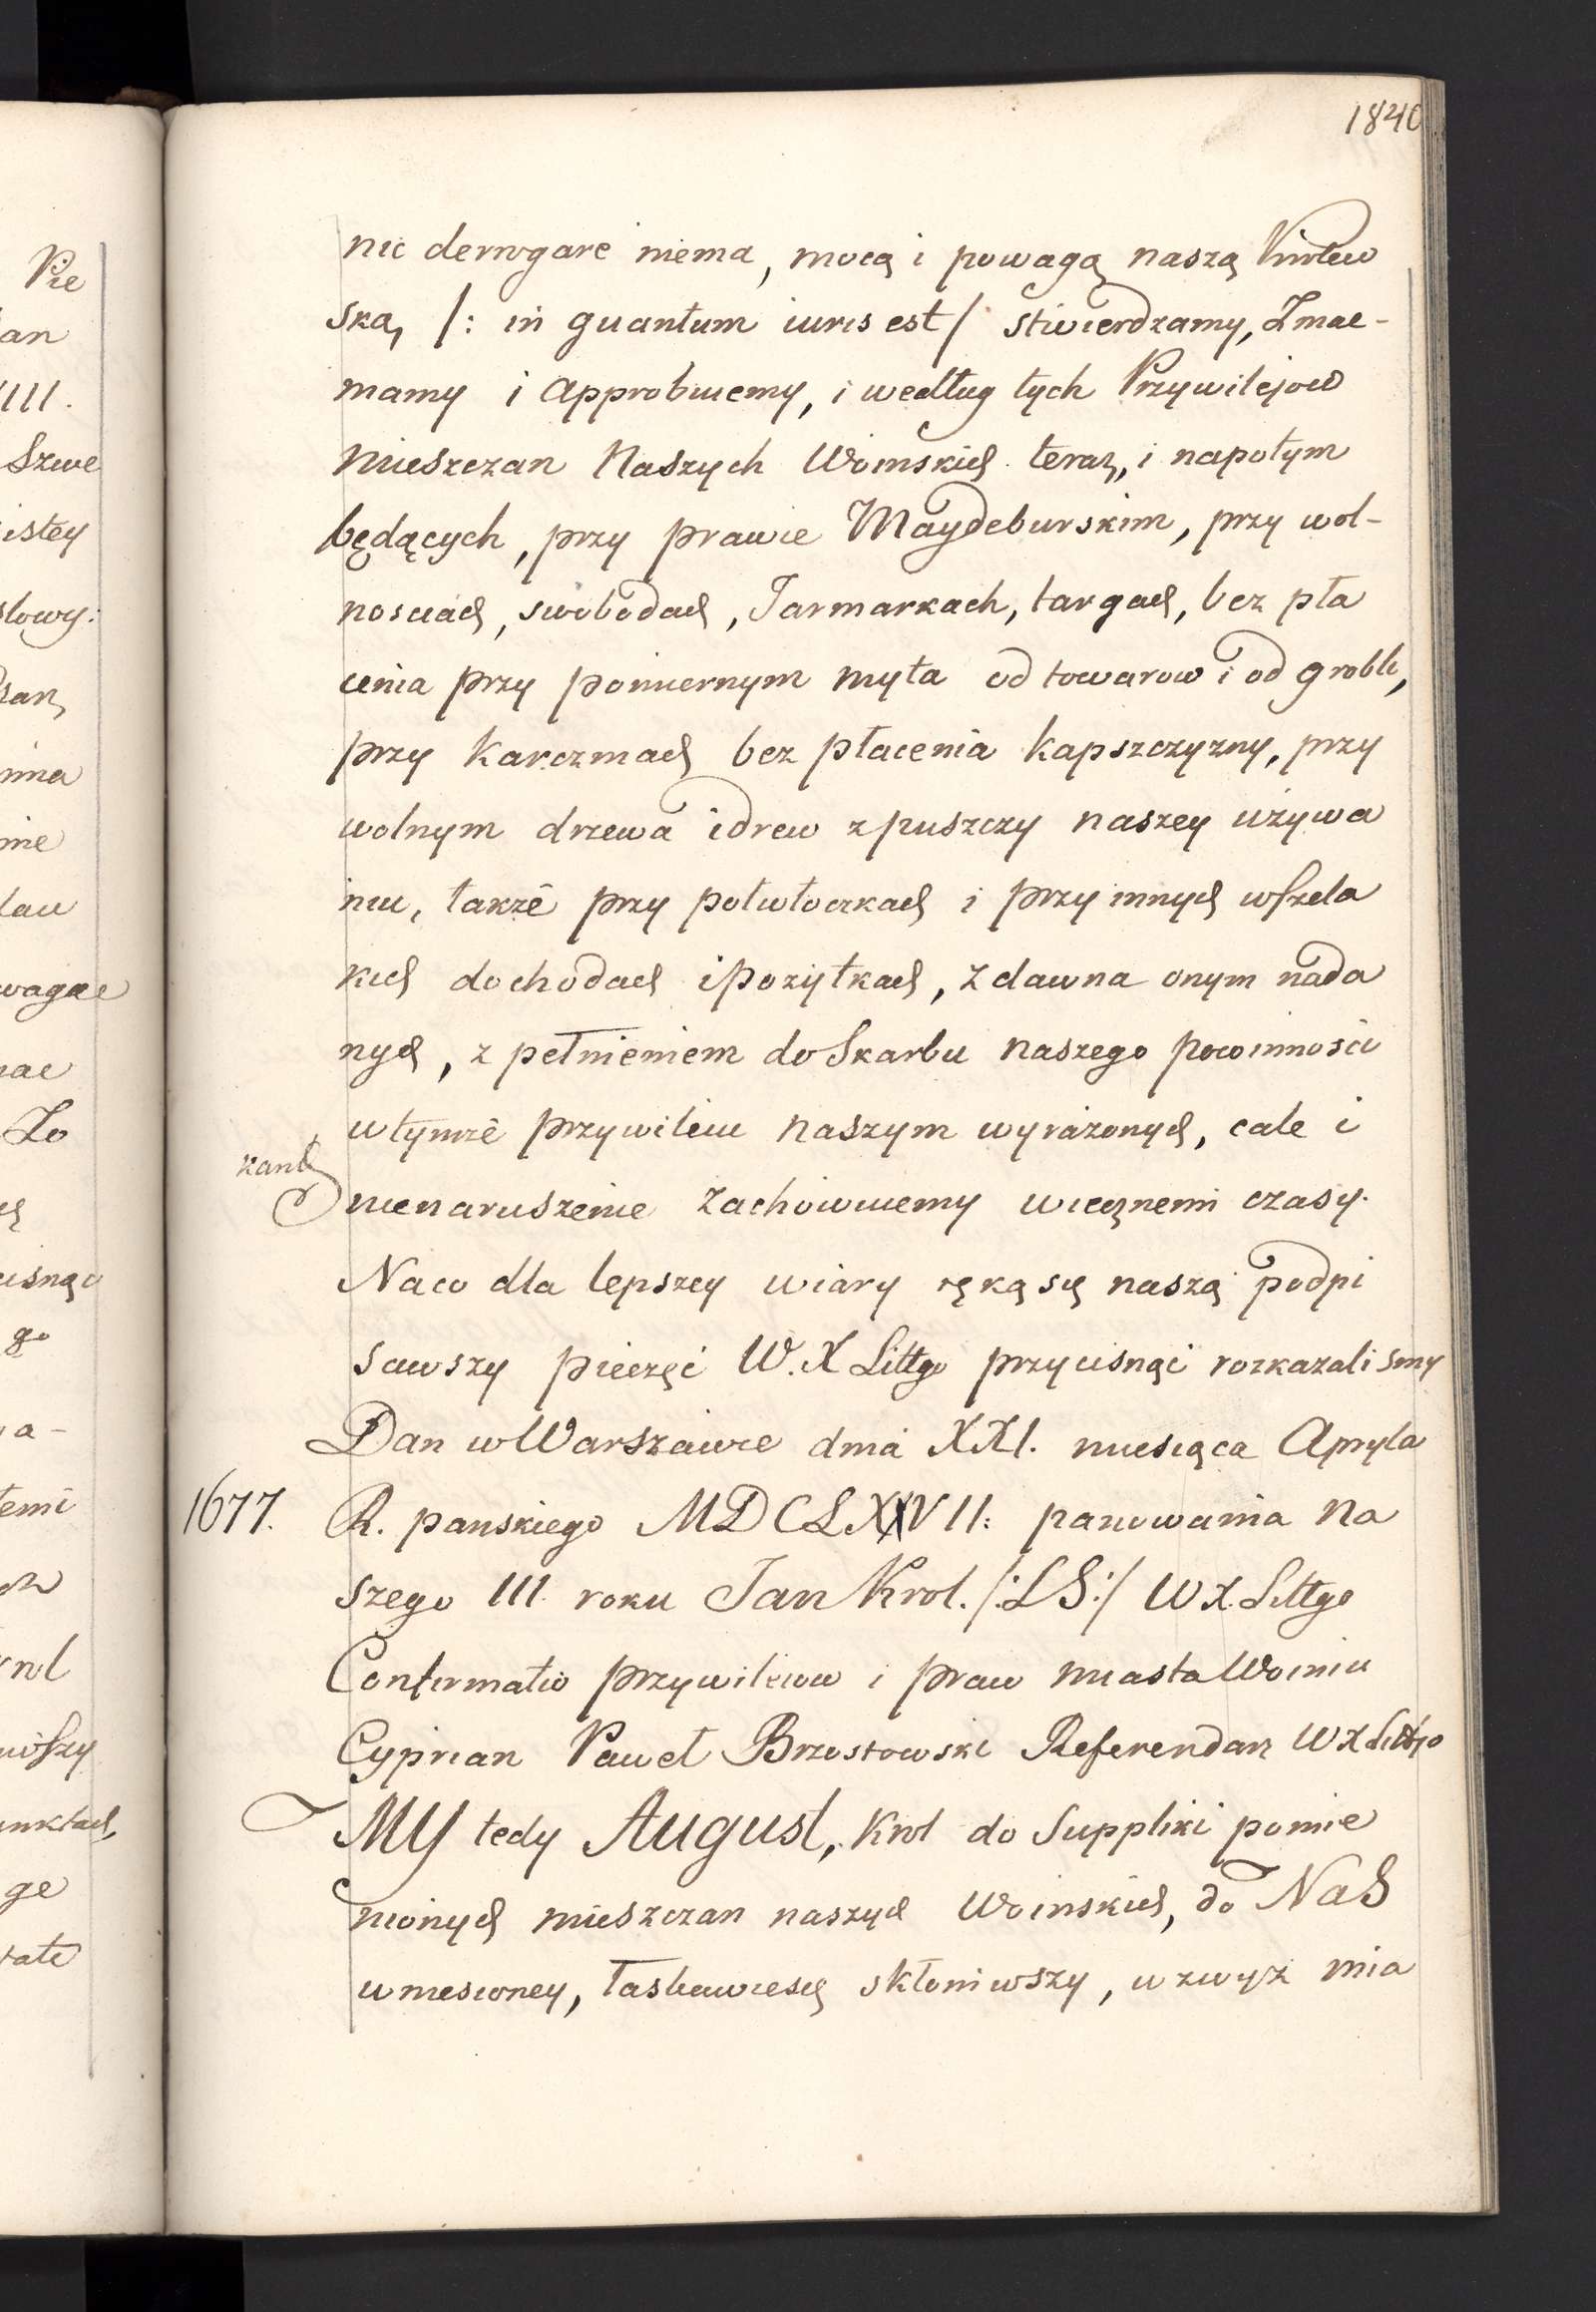 1840
nic derrogare niema, mocą i powagą naszą Krolew
ską, /: in quantum iuris est / stwierdzamy, Zmac-
mamy i Approbuiemy, i według tych Przywilejow
mieszczan Naszych Woinskich teraz, i napotym
będących, przy prawie Maydeburskim, przy wol-
nosciach, swobodach, Jarmarkach, targach, bez pła
cenia przy pomiernym myta od towarow i od grobli,
przy Karczmach bez płacenia Kapszczyzny, przy
wolnym drzewa i drew z puszczy naszey używa
niu, takze przy połwłoczkach i przy innych wszela
kich dochodach i pożytkach, z dawna onym nada
nych, z pełnieniem do Skarbu naszego powinności
w tymże przywileiu naszym wyrażonych, cale i
nienaruszenie zachowuiemy wiecznemi czasy.
Na co dla lepszey wiary ręką się naszą podpi
sawszy pieczęć W. X Littgo przycisnąć rozkazali smy
Dan w Warszawie dnia XXI. miesiąca Apryla
1677. R. panskiego MDCLXXVII: panowania Na
szego III. roku Jan Krol. /:LS:/ W X. Littgo
Confirmatio przywileiow i praw miasta Woiniu
Cyprian Paweł Brzostowski Referendarz W X Littgo
MY tedy August, Krol do Suppliki pomie
nionych mieszczan naszych Woinskich, do NaS
wniesioney, łaskawie się skłoniwszy, wzwyż mia